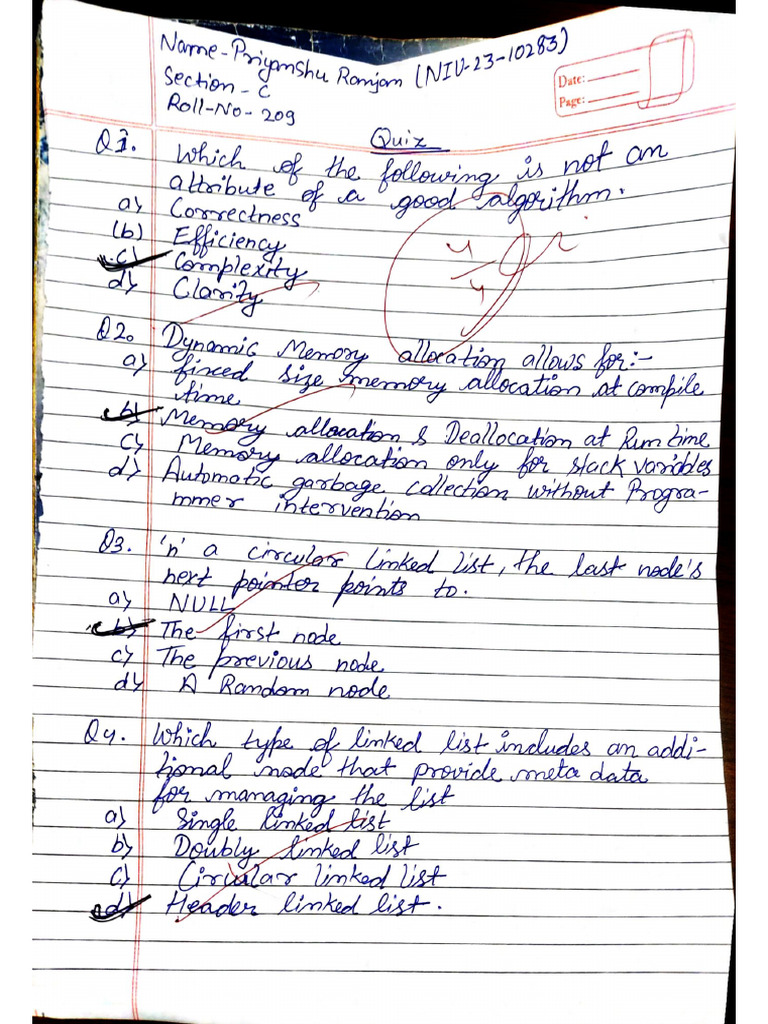 Name-Priyanshu Ranjan (NIU-23-10283)
Section - C
Roll-No- 209
Date:
Page:
Quiz
Q1. Which of the following is not an
attribute of a good algorithm.
a) Correctness
(b) Efficiency
c) Complexity
d) Clarity
4/4
Q2. Dynamic Memory allocation allows for:-
a) fixced size memory allocation at compile
time
b) Memory allocation & Deallocation at Run time
c) Memory allocation only for stack variables
d) Automatic garbage collection without Progra-
mmer intervention
Q3. 'n' a circular linked list, the last node's
next pointer points to.
a) NULL
b) The first node
c) The previous node
d) A Random node
Q4. Which type of linked list includes an addi-
tional node that provide meta data
for managing the list
a) Single linked list
b) Doubly linked list
c) Circular linked list
d) Header linked list.